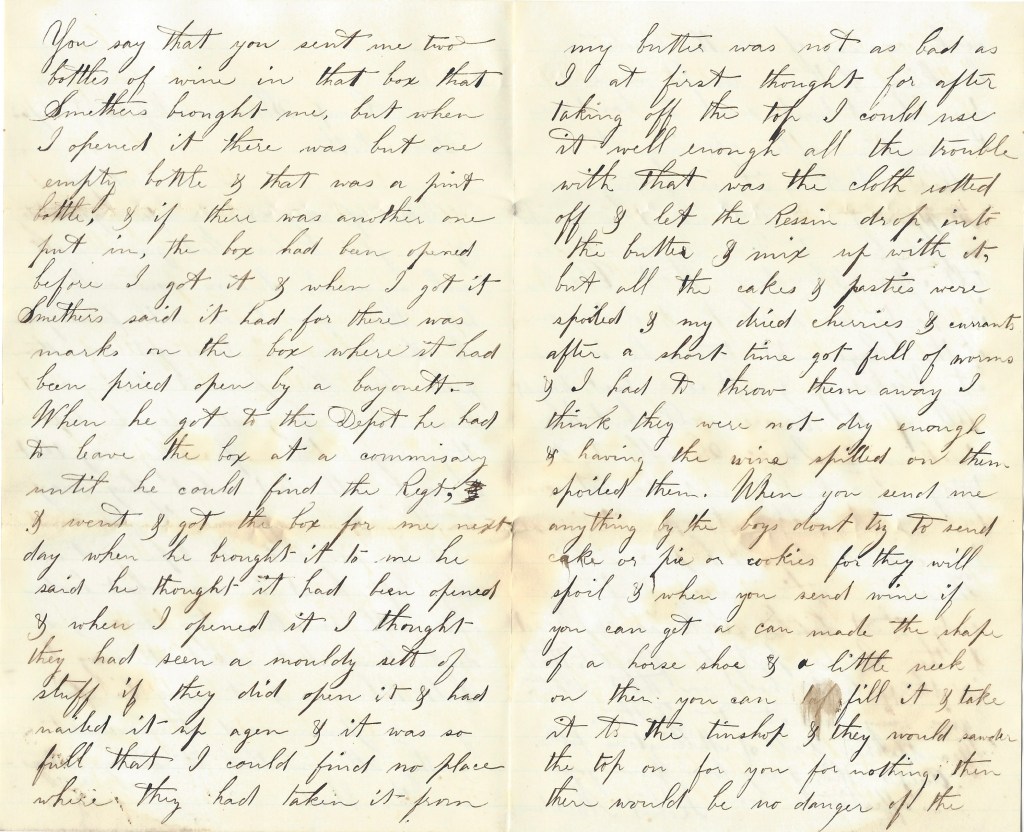 You say that you sent me two
bottles of wine in that box that
Smethers brought me, but when
I opened it there was but one
empty bottle & that was a pint
bottle, & if there was another one
put in, the box had been opened
before I got it & when I got it
Smethers said it had for there was
marks on the box where it had
been pried open by a bayonett.
When he got to the Depot he had
to leave the box at a commisary
until he could find the Regt,
& went & got the box for me next
day when he brought it to me he
said he thought it had been opened
& when I opened it I thought
they had seen a mouldy sett of
stuff if they did open it & had
nailed it up agen & it was so
full that I could find no place
where they had taken it from
my butter was not as bad as
I at first thought for after
taking off the top I could use
it well enough all the trouble
with that was the cloth rotted
off & let the Ressin drop into
the butter & mix up with it,
but all the cakes & pasties were
spoiled & my dried cherries & currants
after a short time got full of worms
& I had to throw them away I
think they were not dry enough
& having the wine spilled on them
spoiled them. When you send me
anything by the boys dont try to send
cake or pie or cookies for they will
spoil & when you send wine if
you can get a can made the shape
of a horse shoe & a little neck
on then you can fill it & take
it to the tinshop & they would sawder
the top on for you for nothing, then
there would be no danger of the